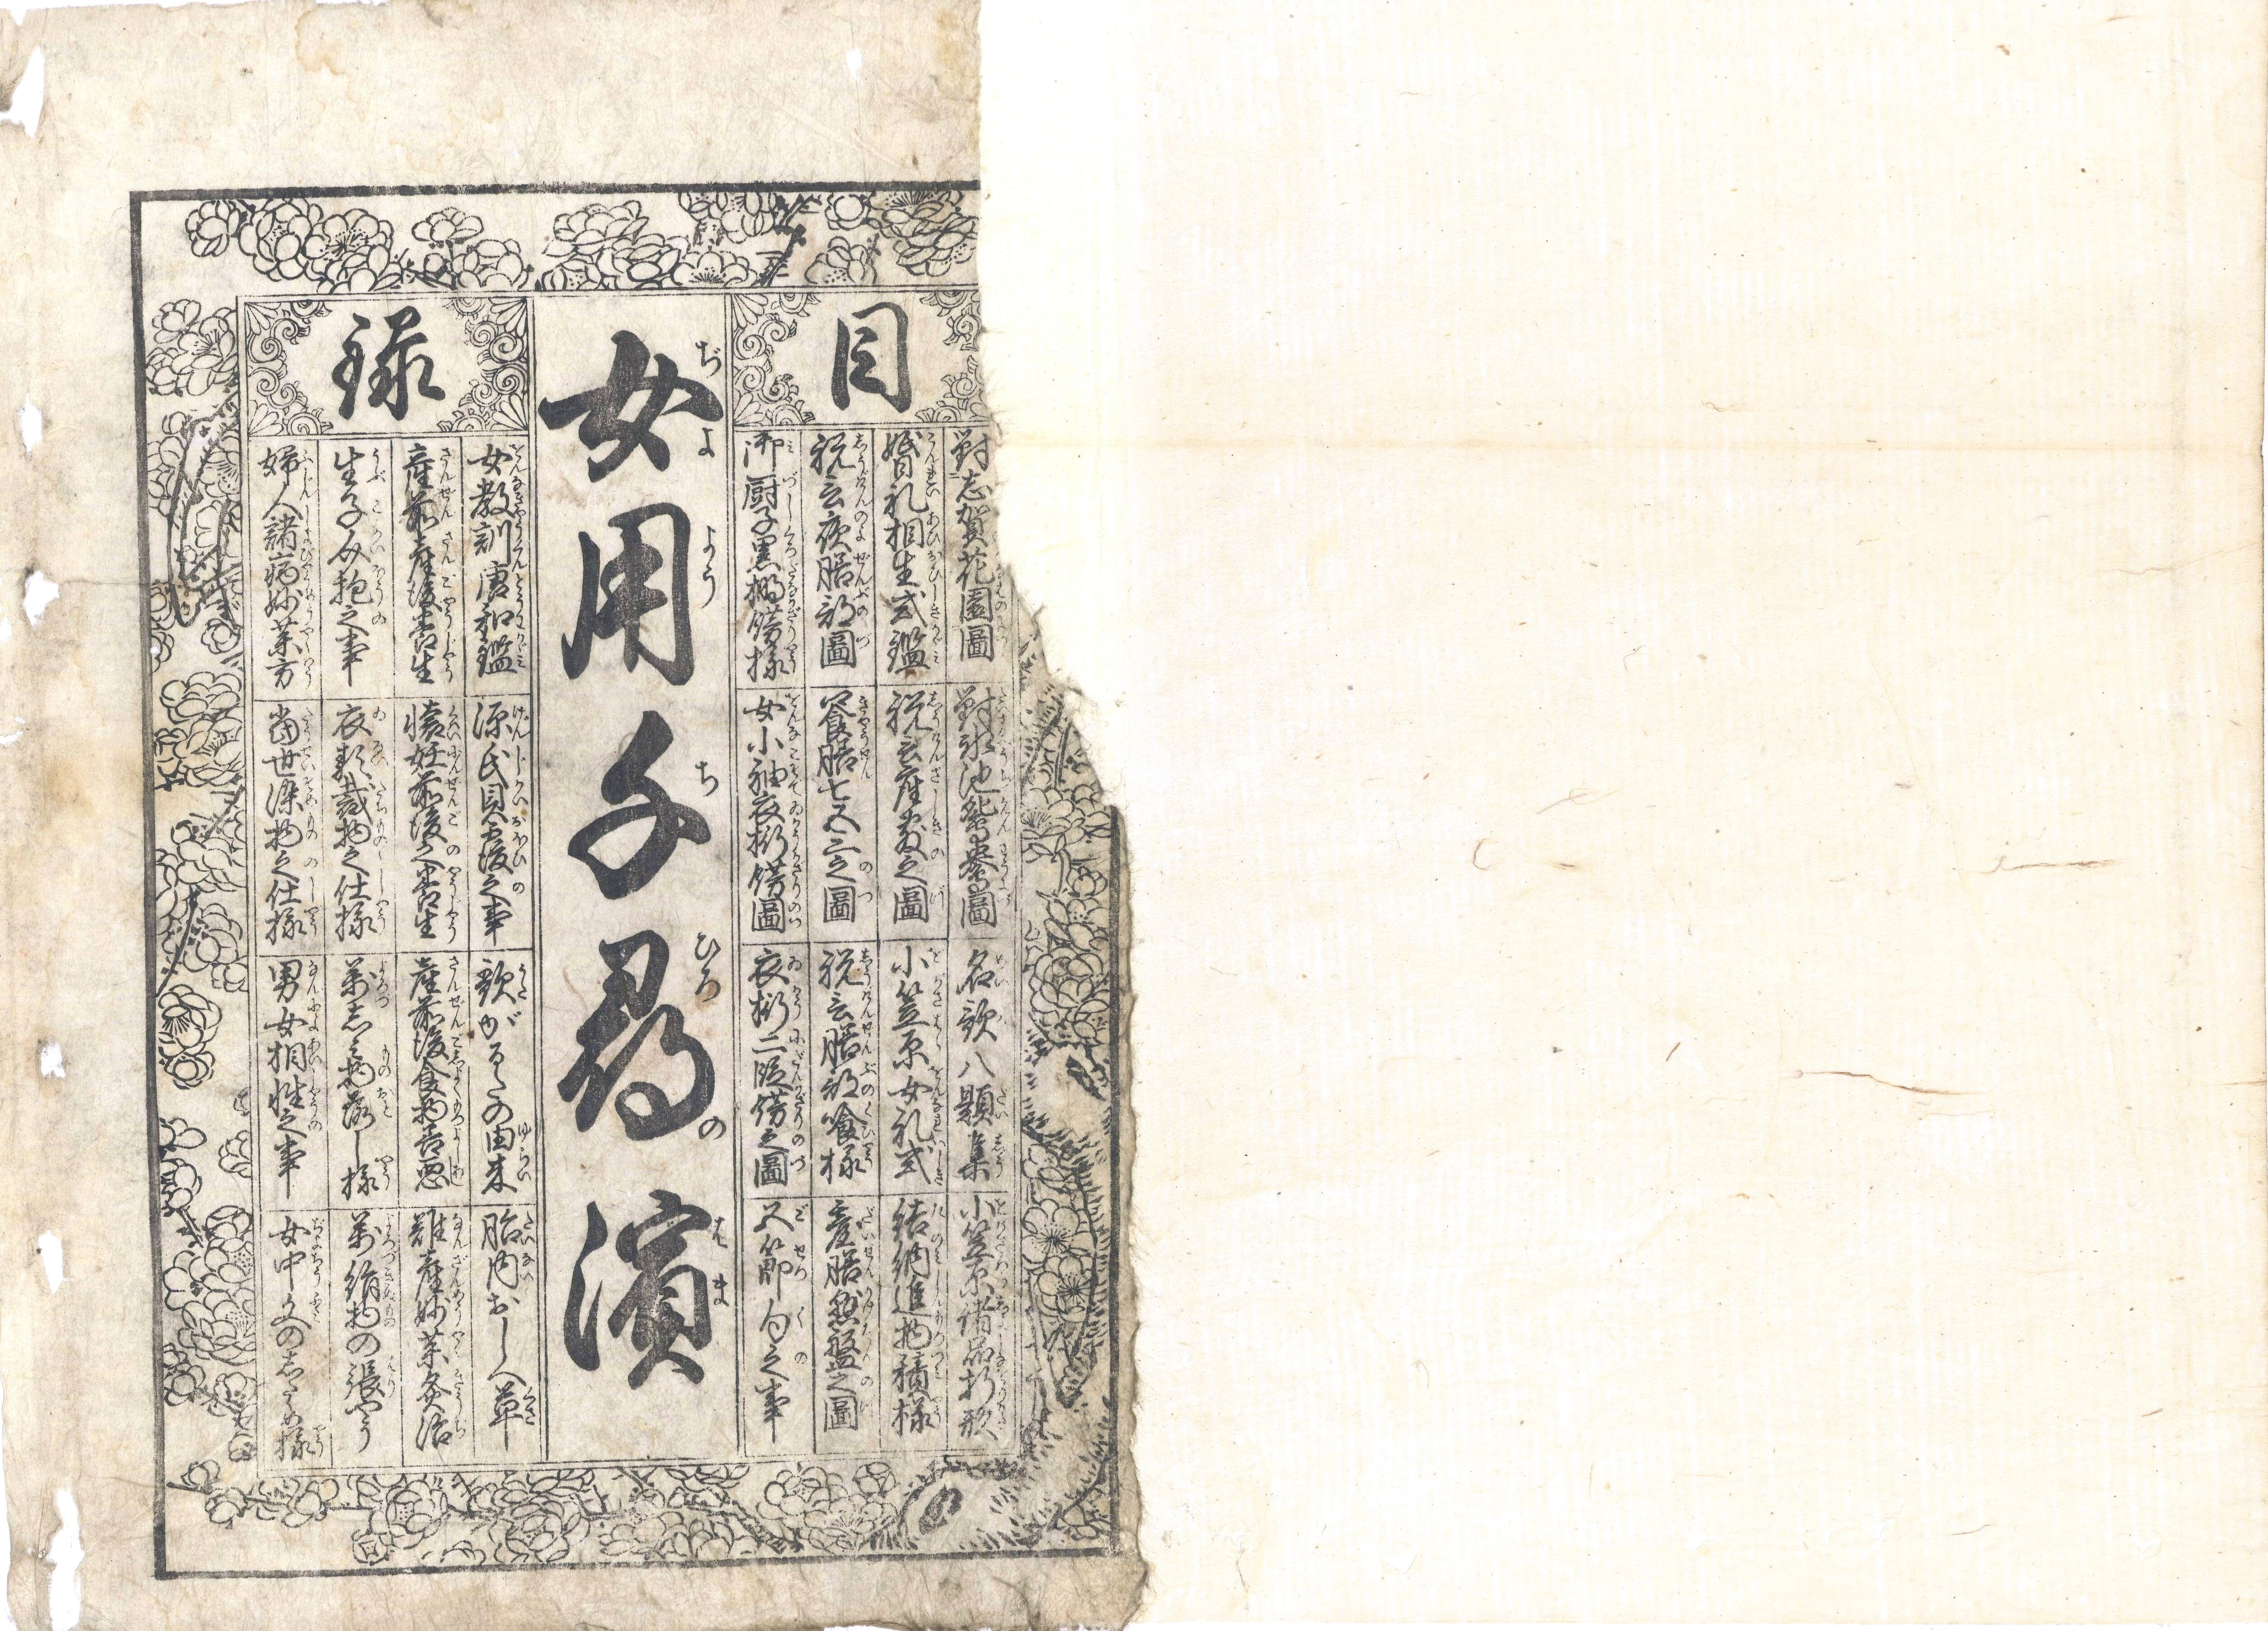 目
對志賀花園圖
對氷池鴛鴦圖
名歌八題集
小笠原諸品折形
婚礼相生式鑑
祝言座敷之圖
小笠原女礼式
結納進物積様
祝言夜膳部圖
饗膳七五三之圖
祝言膳部喰様
臺膳懸盤之圖
御厨子黒棚餝様
女小袖衣桁餝圖
衣桁二階餝之圖
五節句之事
女用千尋濱
ぢよようちひろのはま
録
女教訓唐和鑑
源氏貝覆之事
歌がるたの由来
胎内おしへ草
産前産後養生
懐妊前後之養生
産前後食物善悪
難産妙薬灸治
生子介抱之事
衣類裁物之仕様
萬しみ物落し様
萬絹物の張やう
婦人諸病妙薬方
當世染物之仕様
男女相性之事
女中文のしたゝめ様